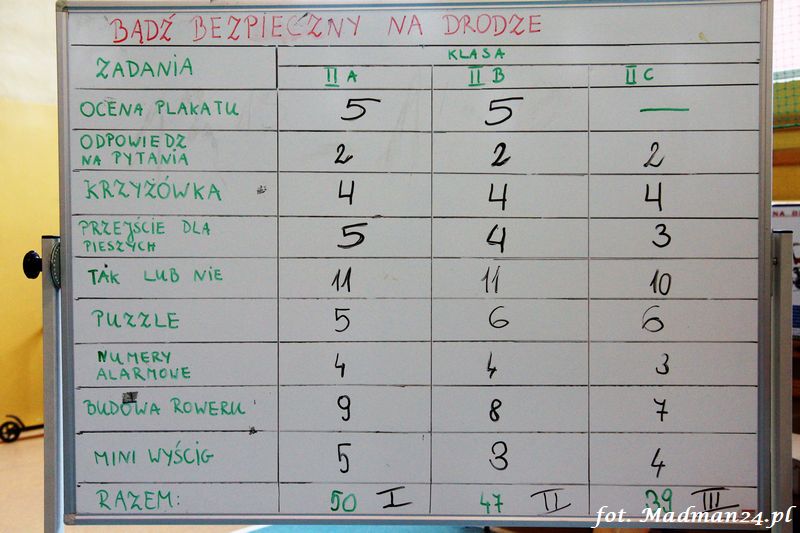 BĄDŹ BEZPIECZNY NA DRODZE
ZADANIA
KLASA
II A II B II C
OCENA PLAKATU 5 5 —
ODPOWIEDZ
NA PYTANIA 2 2 2
KRZYŻÓWKA 4 4 4
PRZEJŚCIE DLA
PIESZYCH 5 4 3
TAK LUB NIE 11 11 10
PUZZLE 5 6 6
NUMERY
ALARMOWE 4 4 3
BUDOWA ROWERU 9 8 7
MINI WYŚCIG 5 3 4
RAZEM: 50 I 47 II 39 III
fot. Madman24.pl